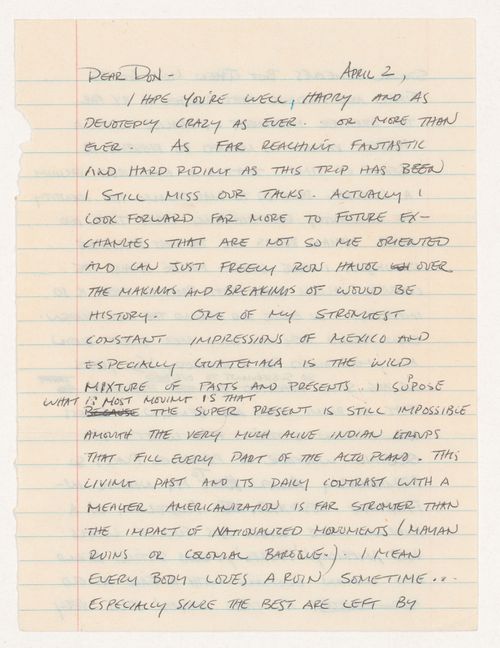 DEAR DON - APRIL 2,
I HOPE YOU'RE WELL, HAPPY AND AS
DEVOTEDLY CRAZY AS EVER. OR MORE THAN
EVER. AS FAR REACHING FANTASTIC
AND HARD RIDING AS THIS TRIP HAS BEEN
I STILL MISS OUR TALKS. ACTUALLY I
LOOK FORWARD FAR MORE TO FUTURE EX-
CHANGES THAT ARE NOT SO ME ORIENTED
AND CAN JUST FREELY RUN HAVOC OVER
THE MAKINGS AND BREAKINGS OF WOULD BE
HISTORY. ONE OF MY STRONGEST
CONSTANT IMPRESSIONS OF MEXICO AND
ESPECIALLY GUATEMALA IS THE WILD
MIXTURE OF PASTS AND PRESENTS. I SUPOSE
WHAT IS MOST MOVING IS THAT
BECAUSE THE SUPER PRESENT IS STILL IMPOSSIBLE
AMONG THE VERY MUCH ALIVE INDIAN GROUPS
THAT FILL EVERY PART OF THE ALTO PLANO. THIS
LIVING PAST AND ITS DAILY CONTRAST WITH A
MEAGER AMERICANIZATION IS FAR STRONGER THAN
THE IMPACT OF NATIONALIZED MONUMENTS (MAYAN
RUINS OR COLONIAL BAROQUE.). I MEAN
EVERY BODY LOVES A RUIN SOMETIME...
ESPECIALLY SINCE THE BEST ARE LEFT BY